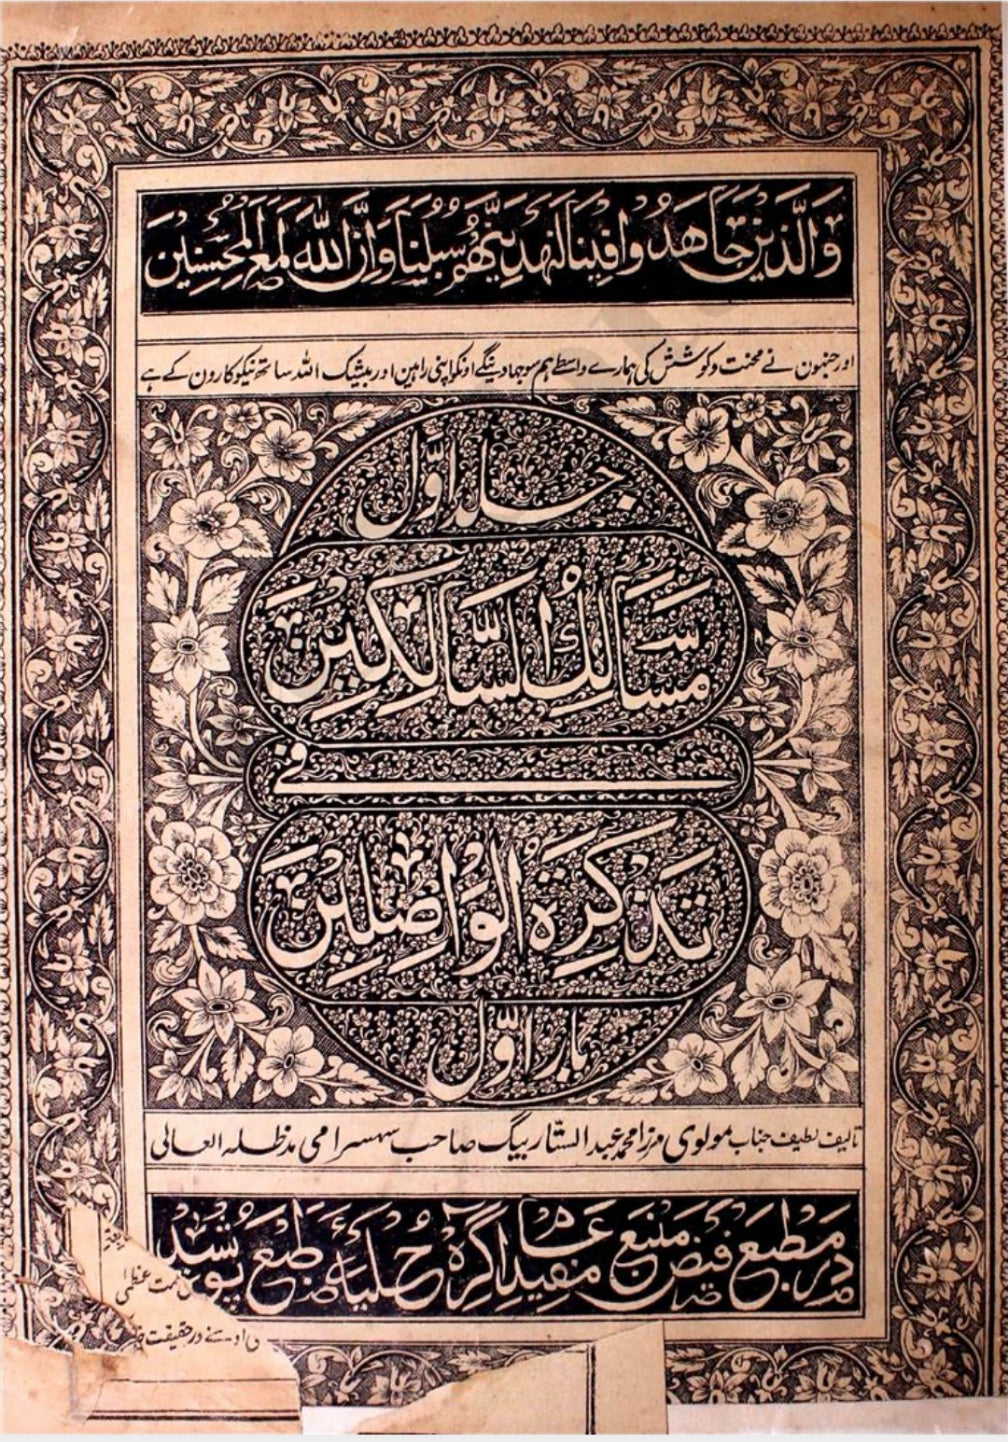 وَالَّذِينَ جَاهَدُوا فِينَا لَنَهْدِيَنَّهُمْ سُبُلَنَا وَاِنَّ اللّٰهَ لَمَعَ الْمُحْسِنِينَ
اور جنہون نے محنت و کوشش کی ہمارے واسطے ہم سوجھا دینگے اونکو اپنی راہین اور بیشک اللہ ساتھ نیکوکارون کے ہے
جلد اوّل
مَسَالِكُ السَّالِكِينَ
فی
تذکرۃ الواصلین
بار اوّل
تالیف لطیف جناب مولوی مرزا محمد عبد الستّار بیگ صاحب سہسرامی مدظلہ العالی
در مطبع فیض منبع مفید عام آگرہ حلیۂ طبع پوشید
ہمت عظمیٰ
در حقیقت